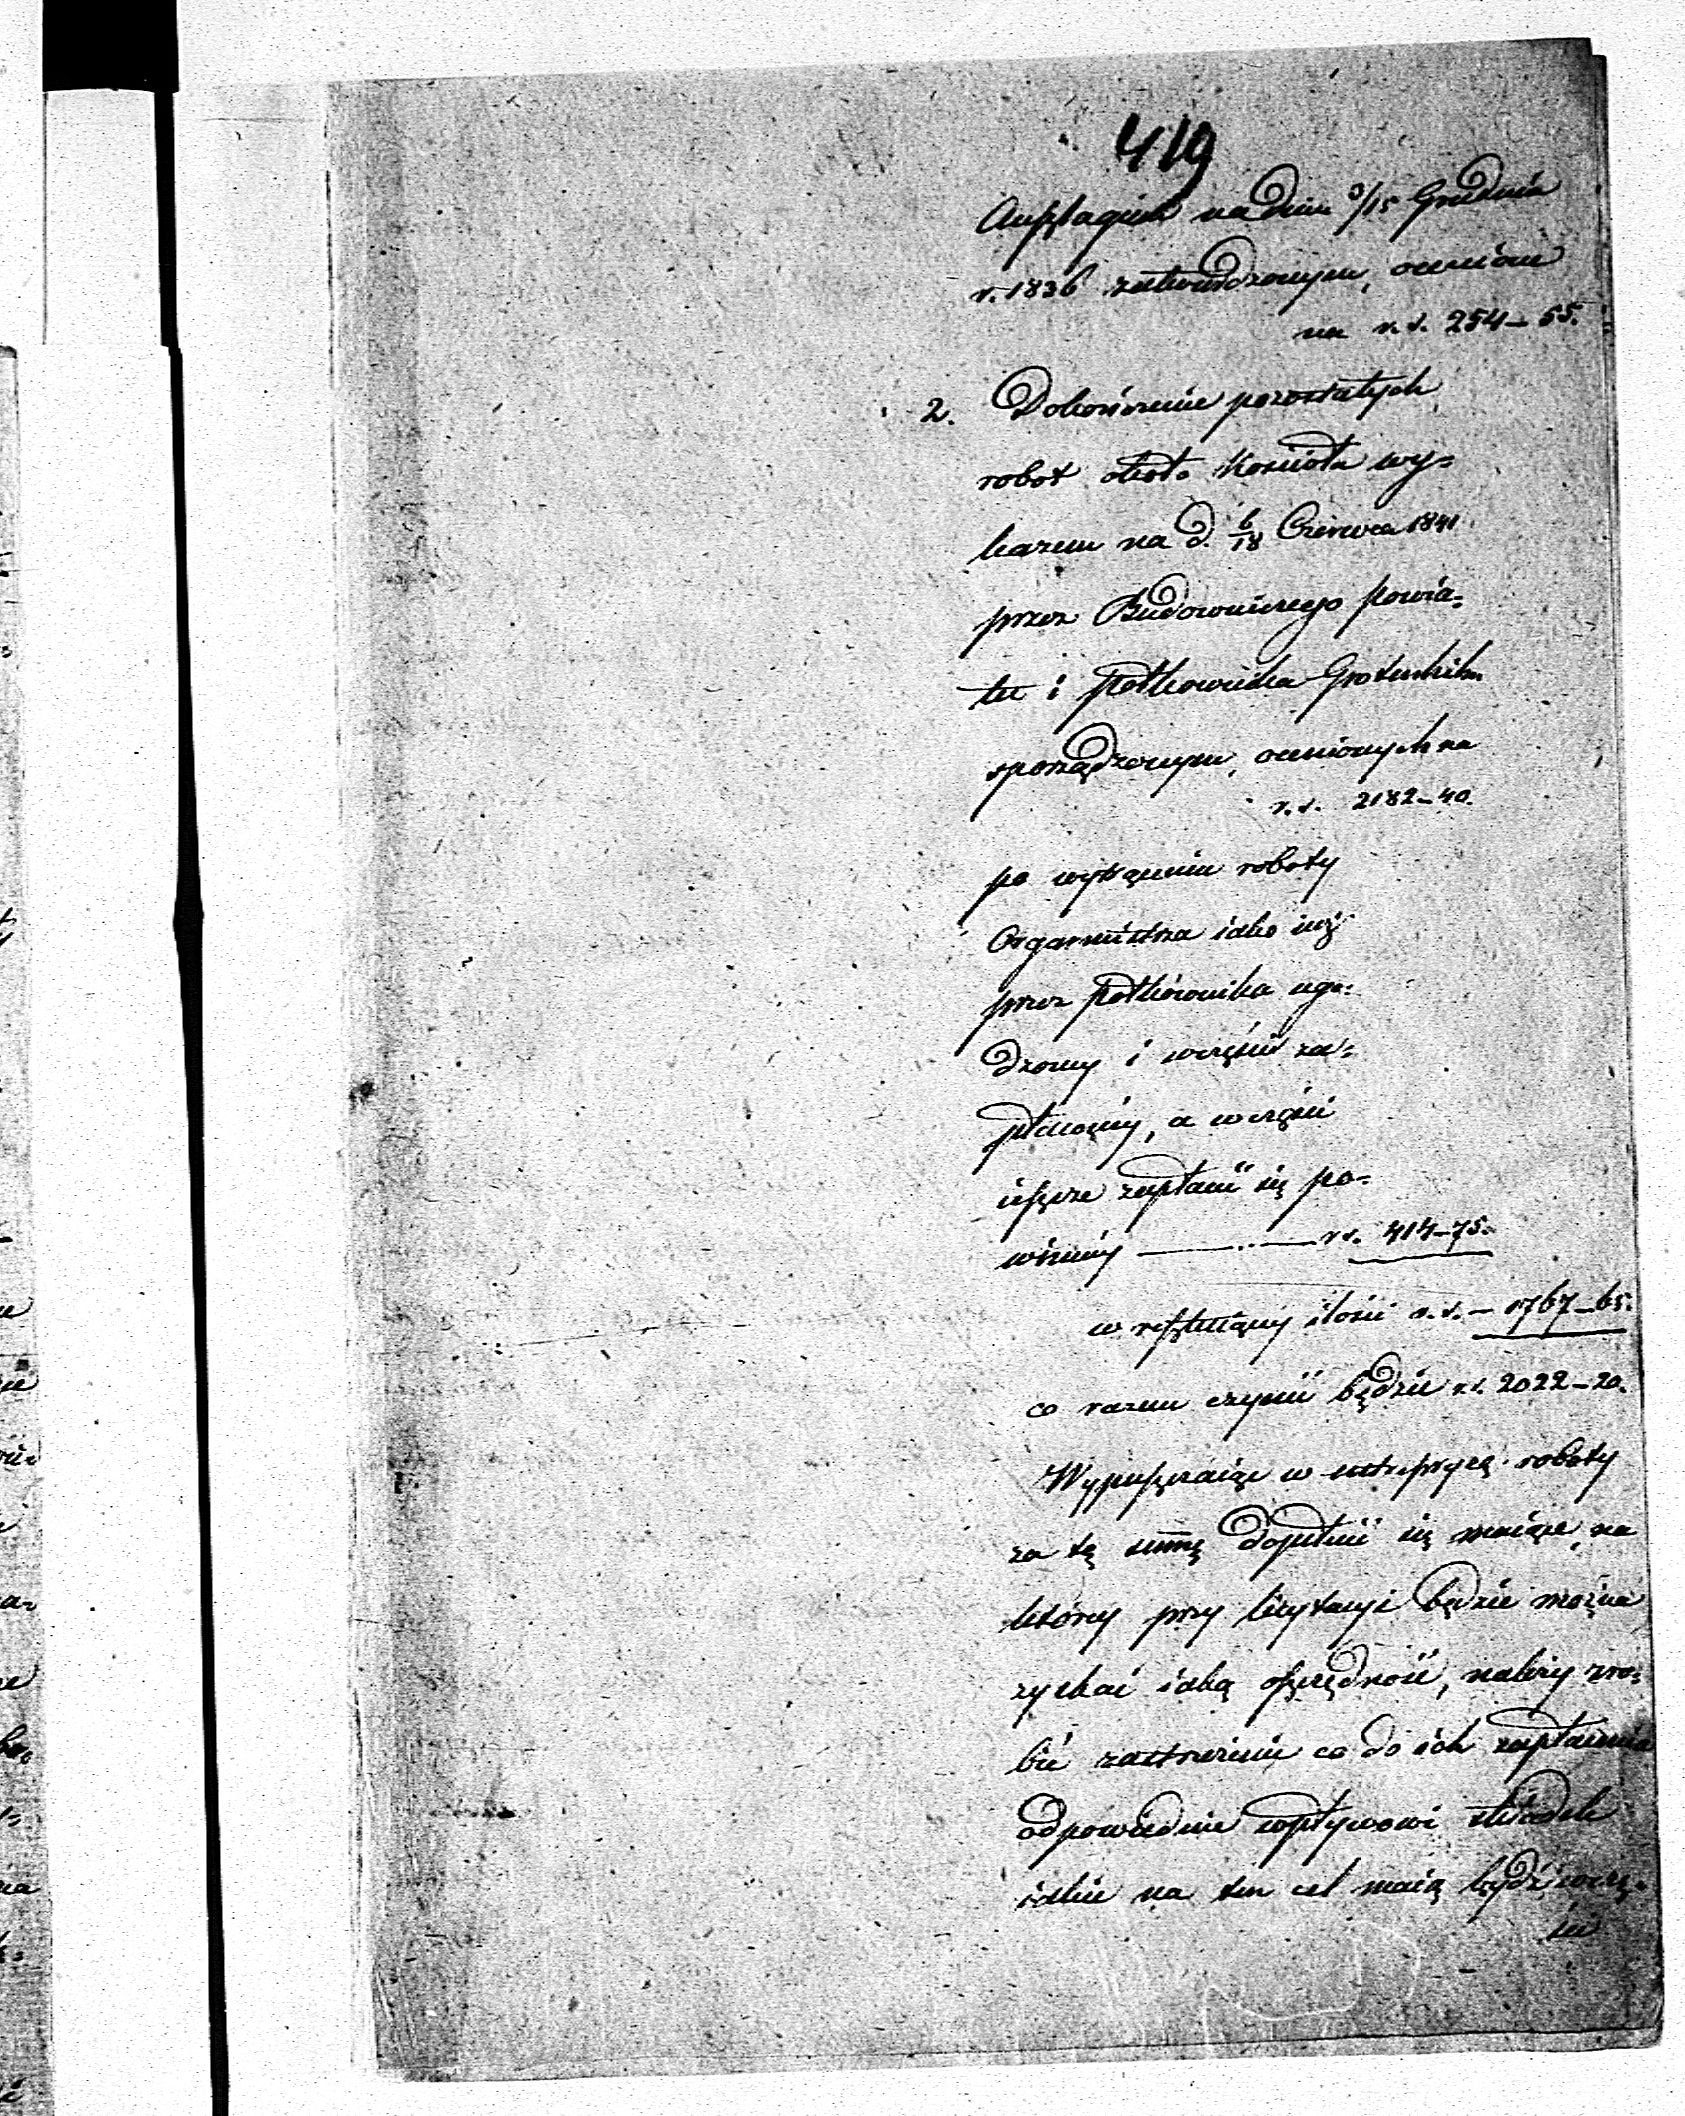 419
Anszlagiem na dniu 3/15 Grudnia
r. 1836 zatwierdzonym, ocenione
na r. s. 254–55.
2. Dokończenie pozostałych
robot około Kościoła wy=
kazem na d. 6/18 Czerwca 1841
przez Budowniczego Powia=
tu i Półkownika
sporządzonym, ocenionych na
r. s. 2182–40.
po wytrąceniu roboty
Organmistrza iako iuż
przez Półkownika ugo=
dzony i w części za=
płaconey, a w części
ieszcze zapłacić się po=
winney ——— r s. 414–75.
w resztuiącey ilości r. s. – 1767–65.
co razem czynić będzie r. s. 2022–20.
Wypuszczaiąc w entrepryzę roboty
za tę summę dopełnić się maiące, na
którey przy licytacyi będzie można
zyskać iaką oszczędność, należy zro=
bić zastrzeżenie co do ich zapłacenia
odpowiednie wpływowi składek
iakie na ten cel maią bydź wczę=